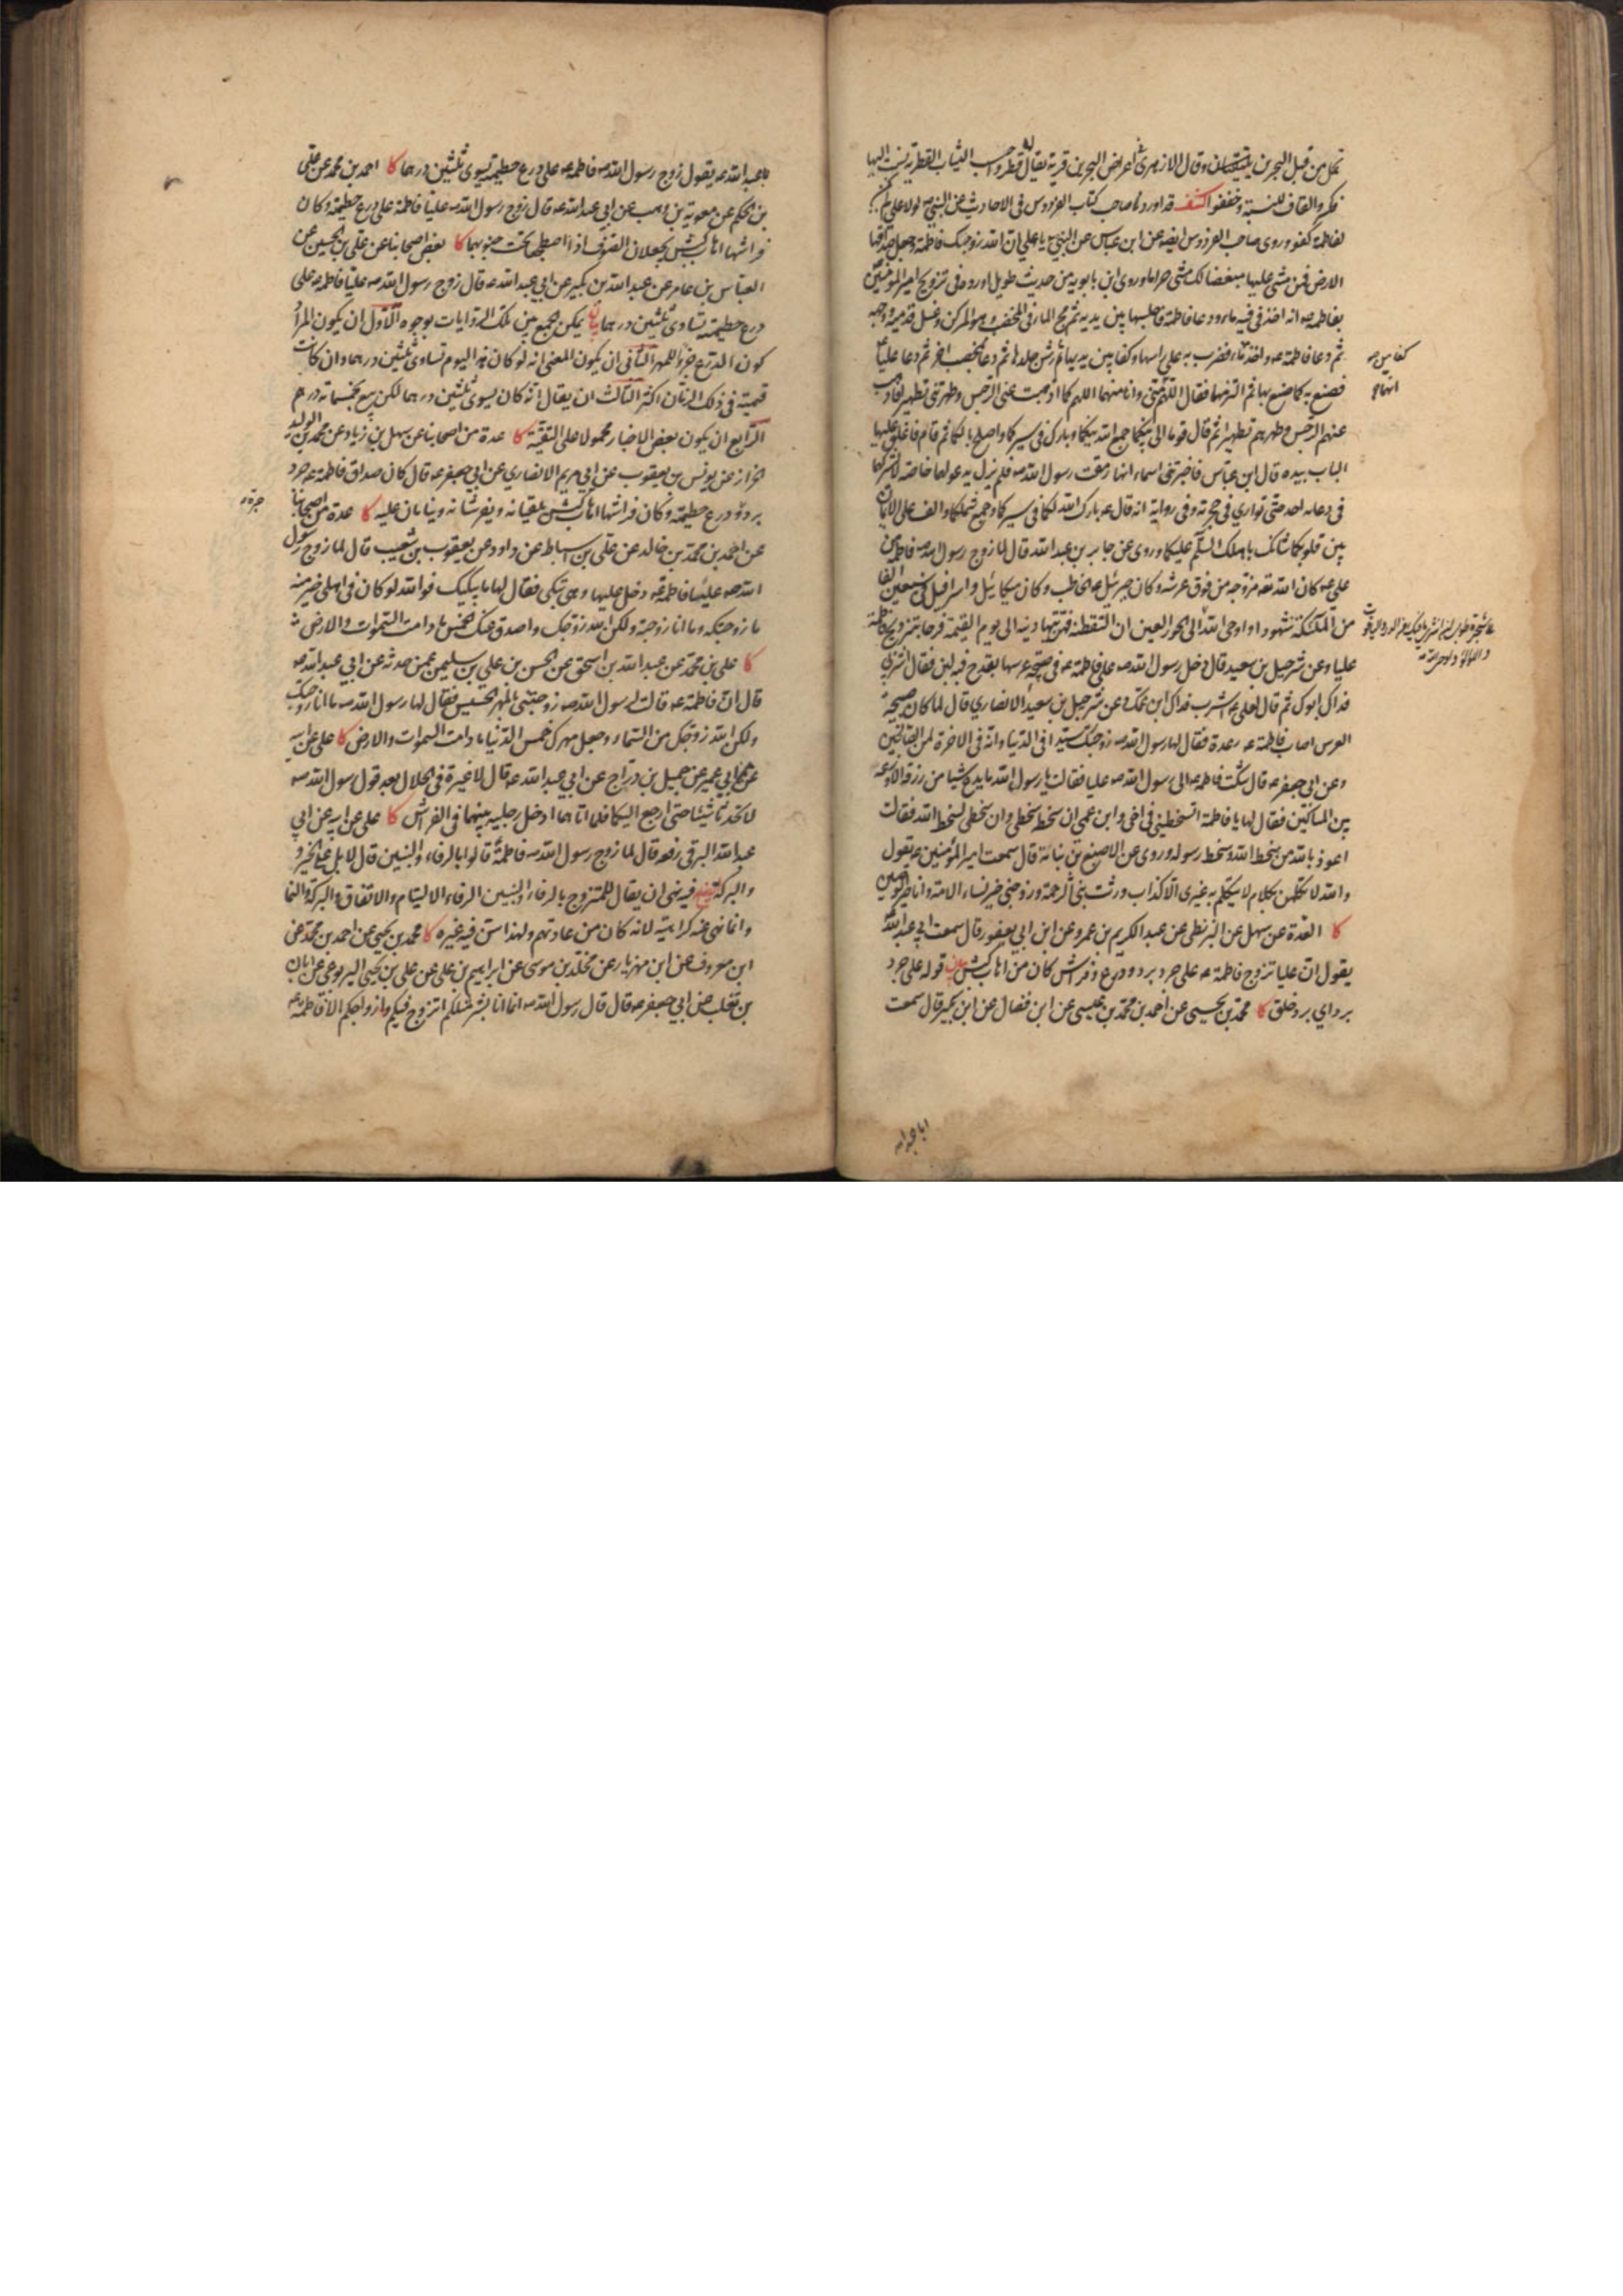 تحمل من قبل البحرين وقال الازهري في اعراض البحرين قرية يقال لها قطر واحسب الثياب القطرية نسبت اليها
فكسروا القاف للنسبة وخففوا كشف قد اورد صاحب كتاب الفردوس في الاحاديث عن النبي ص لولا علي لم يكن
لفاطمة كفو وروى صاحب الفردوس ايضا عن ابن عباس عن النبي ص يا علي ان الله زوجك فاطمة وجعل صداقها
الارض فمن مشى عليها مبغضا لك مشى حراما وروى ابن بابويه من حديث طويل اورده في تزويج امير المؤمنين
بفاطمة ع انه اخذ في فيه ماء ودعا فاطمة فاجلسها بين يديه ثم مج الماء في المخضب وهو المركن وغسل قدميه ووجهه
ثم دعا فاطمة ع واخذ كفا من ماء فضرب به على راسها وكفا بين يديها ثم رش جلدها ثم دعا بمخضب اخر ثم دعا عليا ع
فصنع به كما صنع بها ثم التزمهما فقال اللهم انهما مني وانا منهما اللهم كما اذهبت عني الرجس وطهرتني تطهيرا فاذهب
عنهم الرجس وطهرهم تطهيرا ثم قال قوما الى بيتكما جمع الله بينكما وبارك في سيركما واصلح بالكما ثم قام فاغلق عليهما
الباب بيده قال ابن عباس فاخبرتني اسماء انها رمقت رسول الله ص فلم يزل يدعو لهما خاصة لا يشركهما
في دعائه احد حتى توارى في حجرته وفي رواية انه قال ع بارك الله لكما في سيركما وجمع شملكما والف على الايمان
بين قلوبكما شانك باهلك السلام عليكما وروى عن جابر بن عبد الله قال لما زوج رسول الله ص فاطمة من
علي ع كان الله تعه مزوجه من فوق عرشه وكان جبرئيل ع الخاطب وكان ميكائيل واسرافيل في سبعين الفا
من الملئكة شهودا واوحى الله الى الحور العين ان التقطنه فهن يتهادينه الى يوم القيمة فرحا بتزويج فاطمة
عليا وعن شرحبيل بن سعيد قال دخل رسول الله ص على فاطمة ع في صبيحة عرسها بقدح فيه لبن فقال اشربي
فداك ابوك ثم قال لعلي ع اشرب فداك ابن عمك وعن شرحبيل بن سعيد الانصاري قال لما كان صبيحة
العرس اصاب فاطمة ع رعدة فقال لها رسول الله ص زوجتك سيدا في الدنيا وانه في الاخرة لمن الصالحين
وعن ابي جعفر ع قال شكت فاطمة ع الى رسول الله ص عليا فقالت يا رسول الله ما يدع شيئا من رزقه الا وزعه
بين المساكين فقال لها يا فاطمة اتسخطيني في اخي وابن عمي ان سخطه سخطي وان سخطي لسخط الله فقالت
اعوذ بالله من سخط الله وسخط رسوله وروى عن الاصبغ بن نباتة قال سمعت امير المؤمنين ع يقول
والله لاتكلمن بكلام لا يتكلم به غيري الا كذاب ورثت نبي الرحمة وزوجتي خير نساء الامة وانا خير الوصيين
كا العدة عن سهل عن البزنطي عن عبد الكريم بن عمرو عن ابن ابي يعفور قال سمعت ابي عبد الله
يقول ان عليا تزوج فاطمة ع على جرد برد ودرع وفرش كان من اهاب كبش بيان قوله على جرد
برد اي برد خلق كا محمد بن يحيى عن احمد بن محمد بن عيسى عن ابن فضال عن ابن بكير قال سمعت
كفا من ص
انهما
والؤلؤ
ابا عبد الله
ابا عبد الله ع يقول زوج رسول الله ص فاطمة ع على درع حطمية يسوى ثلثين درهما كا احمد بن محمد عن علي
بن الحكم عن معوية بن وهب عن ابي عبد الله ع قال زوج رسول الله ص عليا فاطمة على درع حطمية وكان
فراشها اهاب كبش يجعلان الصوف اذا اضطجعا تحت جنوبهما كا بعض اصحابنا عن علي بن الحسين عن
العباس بن عامر عن عبد الله بن بكير عن ابي عبد الله ع قال زوج رسول الله ص عليا فاطمة ع على
درع حطمية تساوي ثلثين درهما بيان يمكن الجمع بين تلك الروايات بوجوه الاول ان يكون المراد
كون الدرع جزءا للمهر الثاني ان يكون المعنى انه لو كان في اليوم تساوي ثلثين درهما وان كانت
قيمته في ذلك الزمان اكثر الثالث ان يقال انه كان يسوى ثلثين درهما لكن بيع بخمسمائة درهم
الرابع ان يكون بعض الاخبار محمولا على التقية كا عدة من اصحابنا عن سهل بن زياد عن محمد بن الوليد
الخزاز عن يونس بن يعقوب عن ابي مريم الانصاري عن ابي جعفر ع قال كان صداق فاطمة ع جرد
برد ودرع حطمية وكان فراشها اهاب كبش يلقيانه ويفرشانه وينامان عليه كا عدة من اصحابنا
عن احمد بن محمد بن خالد عن علي بن اسباط عن داود عن يعقوب بن شعيب قال لما زوج رسول
الله ص عليا فاطمة ع دخل عليها وهي تبكي فقال لها ما يبكيك فوالله لو كان في اهلي خير منه
ما زوجتكه وما انا زوجته ولكن الله زوجك واصدق عنك الخمس ما دامت السموات والارض
كا علي بن محمد عن عبد الله بن اسحق عن الحسن بن علي بن سليمن عمن حدثه عن ابي عبد الله ع
قال ان فاطمة ع قالت لرسول الله ص زوجتني بالمهر الخسيس فقال لها رسول الله ص ما انا زوجتك
ولكن الله زوجك من السماء وجعل مهرك خمس الدنيا ما دامت السموات والارض كا علي عن ابيه
عن ابن ابي عمير عن جميل بن دراج عن ابي عبد الله ع قال لا غيرة في الحلال بعد قول رسول الله ص
لا تحدثا شيئا حتى ارجع اليكما فلما اتاهما ادخل رجليه بينهما في الفراش كا علي عن ابيه عن ابي
عبد الله البرقي رفعه قال لما زوج رسول الله ص فاطمة قالوا بالرفاء والبنين قال لا بل على الخير
والبركة بيان فيه نهي ان يقال للمتزوج بالرفاء والبنين الرفاء الالتيام والاتفاق والبركة والنماء
وانما نهى عنه كراهية لانه كان من عادتهم ولهذا سن فيه غيره كا محمد بن يحيى عن احمد بن محمد عن
ابن معروف عن ابن مهزيار عن مخلد بن موسى عن ابراهيم بن علي عن علي بن يحيى اليربوعي عن ابان
بن تغلب عن ابي جعفر ع قال قال رسول الله ص انما انا بشر مثلكم اتزوج فيكم وازواجكم الا فاطمة ع